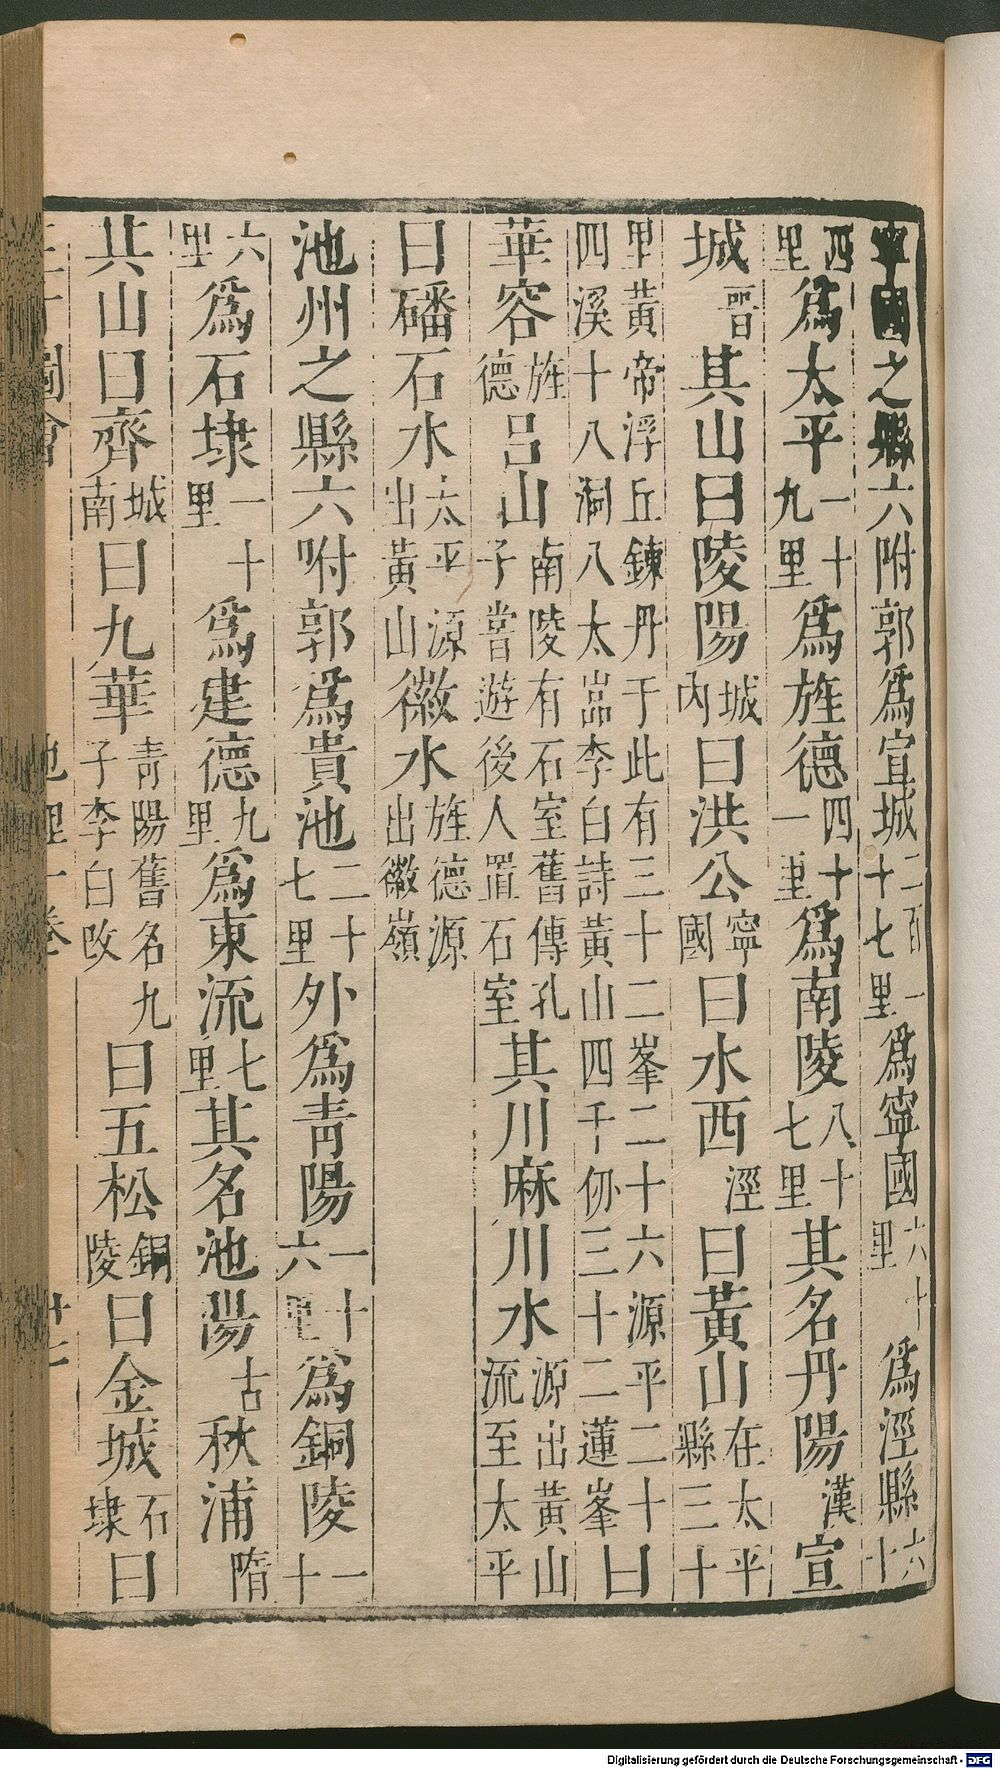 寧國之縣六附郭爲宣城二百一十七里爲寧國六十里爲涇縣六十
西里爲太平一十九里爲旌德四十一里爲南陵八十七里其名丹陽漢宣
城晉其山曰陵陽城內曰洪公寧國曰水西涇曰黃山在太平縣三十
里黃帝浮丘鍊丹于此有三十二峯二十六源平二十四溪十八洞八太嵓李白詩黃山四千仞三十二蓮峯曰
華容旌德呂山南陵有石室舊傳孔子嘗遊後人置石室其川麻川水源出黃山流至太平
曰磻石水太平源出黃山徽水旌德源出徽嶺
池州之縣六咐郭爲貴池二十七里外爲靑陽一十六里爲銅陵一十
六里爲石埭一十里爲建德九里爲東流七里其名池陽古秋浦隋
共山曰齊城南曰九華靑陽舊名九子李白改曰五松銅陵曰金城石埭曰
圖會 地理一卷
Digitalisierung gefördert durch die Deutsche Forschungsgemeinschaft - DFG